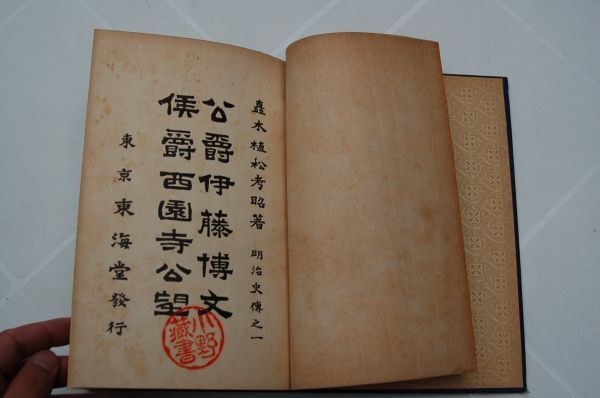 蠡木植松考昭著 明治史傳之一
公爵伊藤博文
侯爵西園寺公望
東京東海堂發行
小野藏書